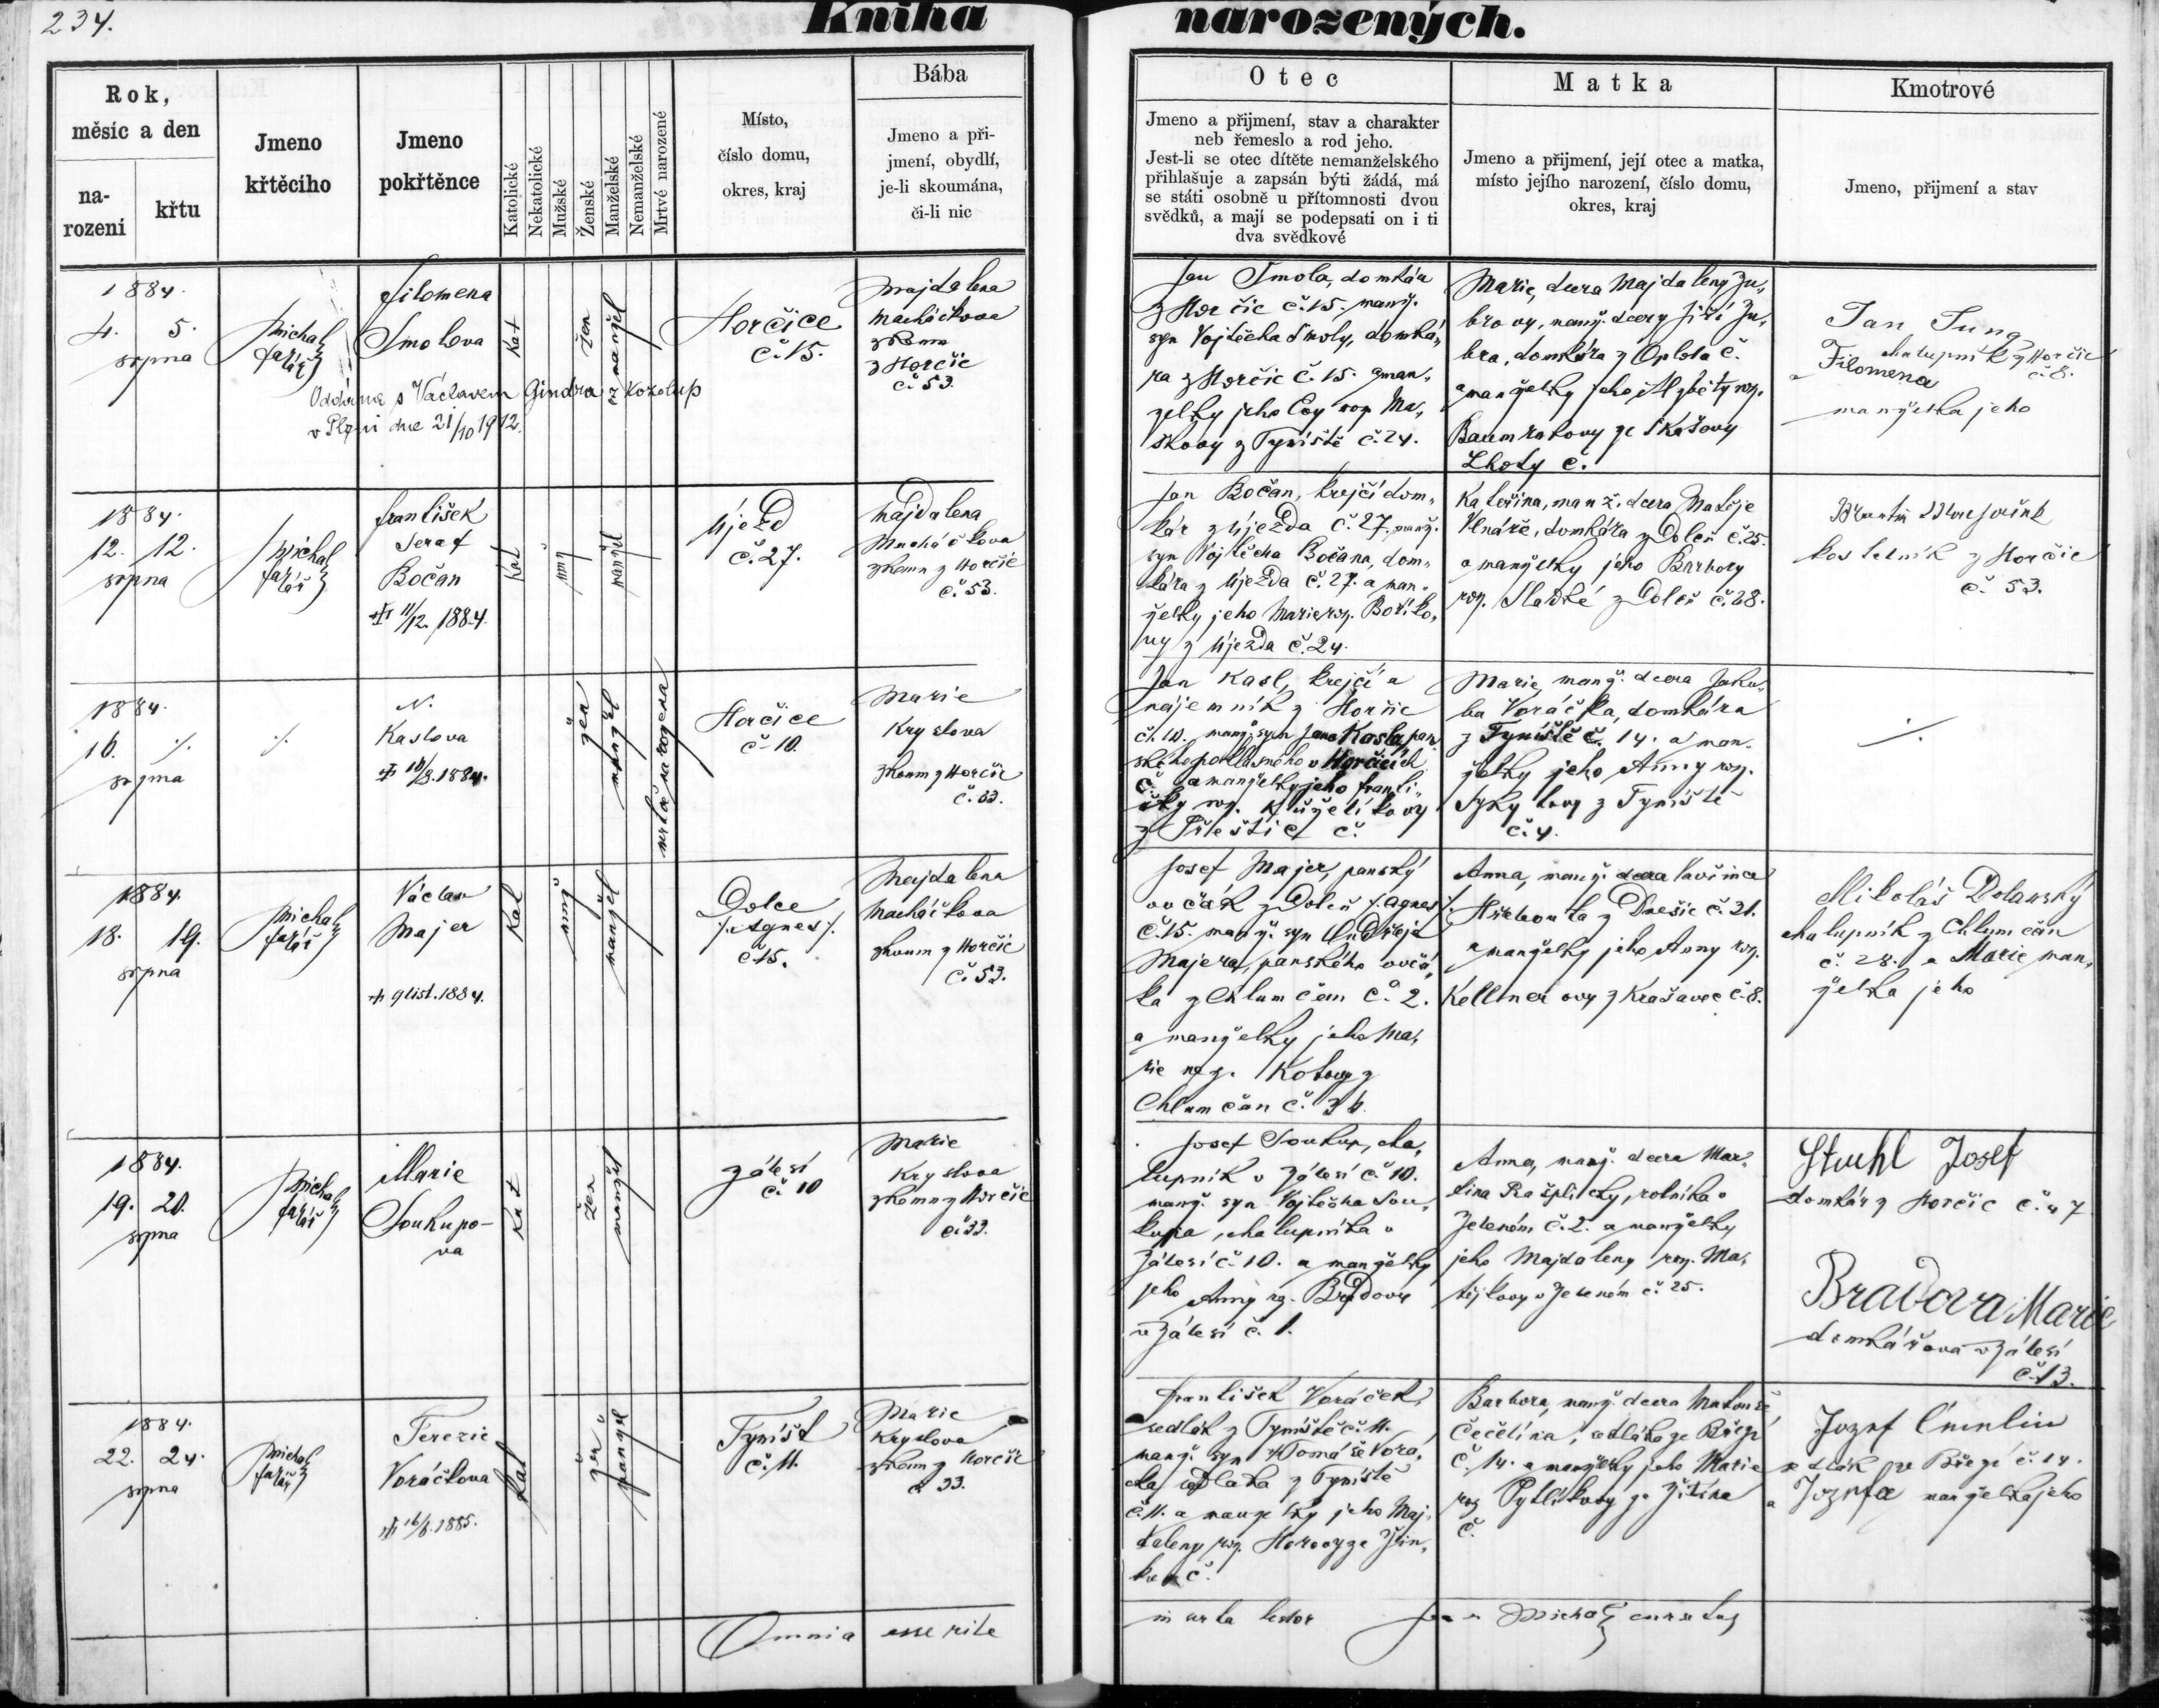 234.
Kniha narozených.
Rok,
měsíc a den
na-
rození
křtu
Jmeno
křtěcího
Jmeno
pokřtěnce
Katolické
Nekatolické
Mužské
Ženské
Manželské
Nemanželské
Mrtvé narozené
Místo,
číslo domu,
okres, kraj
Bába
Jmeno a při-
jmení, obydlí,
je-li skoumána,
či-li nic
Otec
Jmeno a přijmení, stav a charakter
neb řemeslo a rod jeho.
Jest-li se otec dítěte nemanželského
přihlašuje a zapsán býti žádá, má
se státi osobně u přítomnosti dvou
svědků, a mají se podepsati on i ti
dva svědkové
Matka
Jmeno a přijmení, její otec a matka,
místo jejího narození, číslo domu,
okres, kraj
Kmotrové
Jmeno, přijmení a stav
1884.
4. 5.
srpna
Michal
farář
Filomena
Smolova
Kat
žen
manžel
Horčice
č. 15.
Majdalena
Macháčkova
zkoum
z Horčic
č. 53.
Oddána s Václavem Jindra z Kozolup
v Plzni dne 21/10 1912.
Jan Smola, domkář
z Horčic č. 15. manž.
syn Vojtěcha Smoly, domká,
ra z Horčic č. 15. a man,
želky jeho Evy roz. Ma,
škovy z Týniště č. 24.
Marie, dcera Majdaleny Zu,
brovy, manž. dcery Jiří Zu,
bra, domkáře z Oplota č.
a manželky jeho Alžběty roz.
Baumrukovy ze Skašovy
Lhoty č.
Jan Sung
chalupník z Horčic
č. 8.
a Filomena
manželka jeho
1884.
12. 12.
srpna
Michal
farář
František
Seraf
Bočan
11/12. 1884.
Kat
muž
manžel
Újezd
č. 27.
Majdalena
Macháčkova
zkoum z Horčic
č. 53.
Jan Bočan, krejčí dom,
kář z Újezda č. 27. manž.
syn Vojtěcha Bočana, dom,
káře z Újezda č. 27. a man,
želky jeho Marie roz. Boříko,
vy z Újezda č. 24.
Kateřina, manž. dcera Matěje
Vlnáře, domkáře z Dolců č. 25.
a manželky jeho Barbory
roz. Sladké z Dolců č. 28.
kostelník z Horčic
č. 53.
1884.
16. ./.
srpna
./.
N.
Kaslova
16/8. 1884.
žen
manžel
mrtvě narozena
Horčice
č. 10.
Marie
Kryslova
zkoum z Horčic
č. 33.
Jan Kasl, krejčí a
nájemník z Horčic
č. 10. manž. syn Jana Kasla, pan,
ského v Horčicích
č. a manželky jeho Franti,
šky roz. Kuželíkovy
z Přeštic č.
Marie, manž. dcera Jaku,
ba Voráčka, domkáře
z Týniště č. 14. a man,
želky jeho Anny roz.
Sykylovy z Týniště
č. 4.
./.
1884.
18. 19.
srpna
Michal
farář
Václav
Majer
9 list. 1884.
Kat
muž
manžel
Dolce
/: Agnes :/
č 15.
Majdalena
Macháčkova
zkoum z Horčic
č. 53.
Josef Majer, panský
ovčák z Dolců /: Agnes :/
č. 15. manž. syn Ondřeje
Majera, panského ovčá,
ka z Chlumčan č. 2.
a manželky jeho Ma,
rie roz. Kotovy z
Chlumčan č. 36.
Anna, manž. dcera Vavřince
z Dnešic č. 21.
a manželky jeho Anny roz.
Kellnerovy z Krašovec č. 8.
Mikoláš Dolanský
chalupník z Chlumčan
č. 28. a Marie man,
želka jeho
1884.
19. 20.
srpna
Michal
farář
Marie
Soukupo-
va
Kat
žen
manžel
Zálesí
č. 10
Marie
Kryslova
zkoum z Horčic
č. 33.
Josef Soukup, cha,
lupník v Zálesí č. 10.
manž. syn Vojtěcha Sou,
kupa, chalupníka v
Zálesí č. 10. a manželky
jeho Anny roz. Bradovy
v Zálesí č. 1.
Anna, manž. dcera Mar,
tina Rašplichy, rolníka v
Zeleném č. 2. a manželky
jeho Majdaleny roz. Ma,
tějkovy v Zeleném č. 25.
Stuhl Josef
domkář z Horčic č. 47
Bradova Marie
domkářova v Zálesí
č. 13.
1884.
22. 24.
srpna
Michal
farář
Terezie
Voráčkova
16/8. 1885.
Kat
žen
manžel
Týnišť
č. 11.
Marie
Kryslova
zkoum z Horčic
č 33.
František Voráček,
sedlák z Týniště č. 11.
manž. syn Tomáše Vorá,
čka sedláka z Týniště
č. 11. a manželky jeho Maj,
daleny roz. Horovy ze Žin,
kov č.
Barbora, manž. dcera Matouše
Čečelína, sedláka ze Březí
č. 14. a manželky jeho Marie
roz. Pytlíkovy ze Žitína
č.
sedlák ze Březí č. 14.
a Jozefa manželka jeho
Omnia esse rite
inserta testor Jan Michal curatus